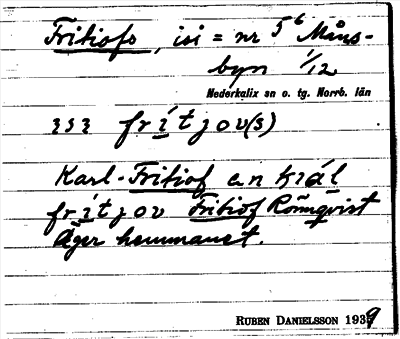 Fritiofs, isi = nr 5⁶ Måns-
byn 1/12
Nederkalix sn o. tg. Norrb. län
ʒsʒ frítjov(s)
Karl-Fritiof en
frítjov Fritiof Rönnqvist
Äger hemmanet.
RUBEN DANIELSSON 1939